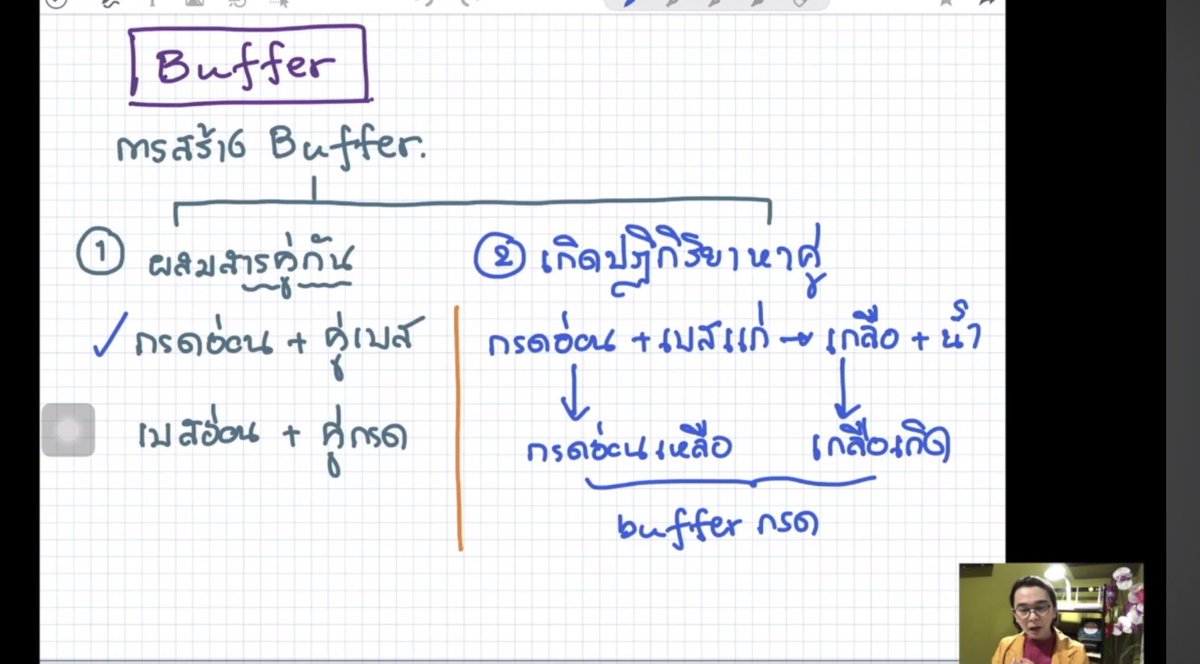 Buffer
การสร้าง Buffer.
① ผสมสารคู่กัน
✓ กรดอ่อน + คู่เบส
เบสอ่อน + คู่กรด
② เกิดปฏิกิริยาหาคู่
กรดอ่อน + เบสแก่ → เกลือ + น้ำ
กรดอ่อนเหลือ เกลือเกิด
buffer กรด